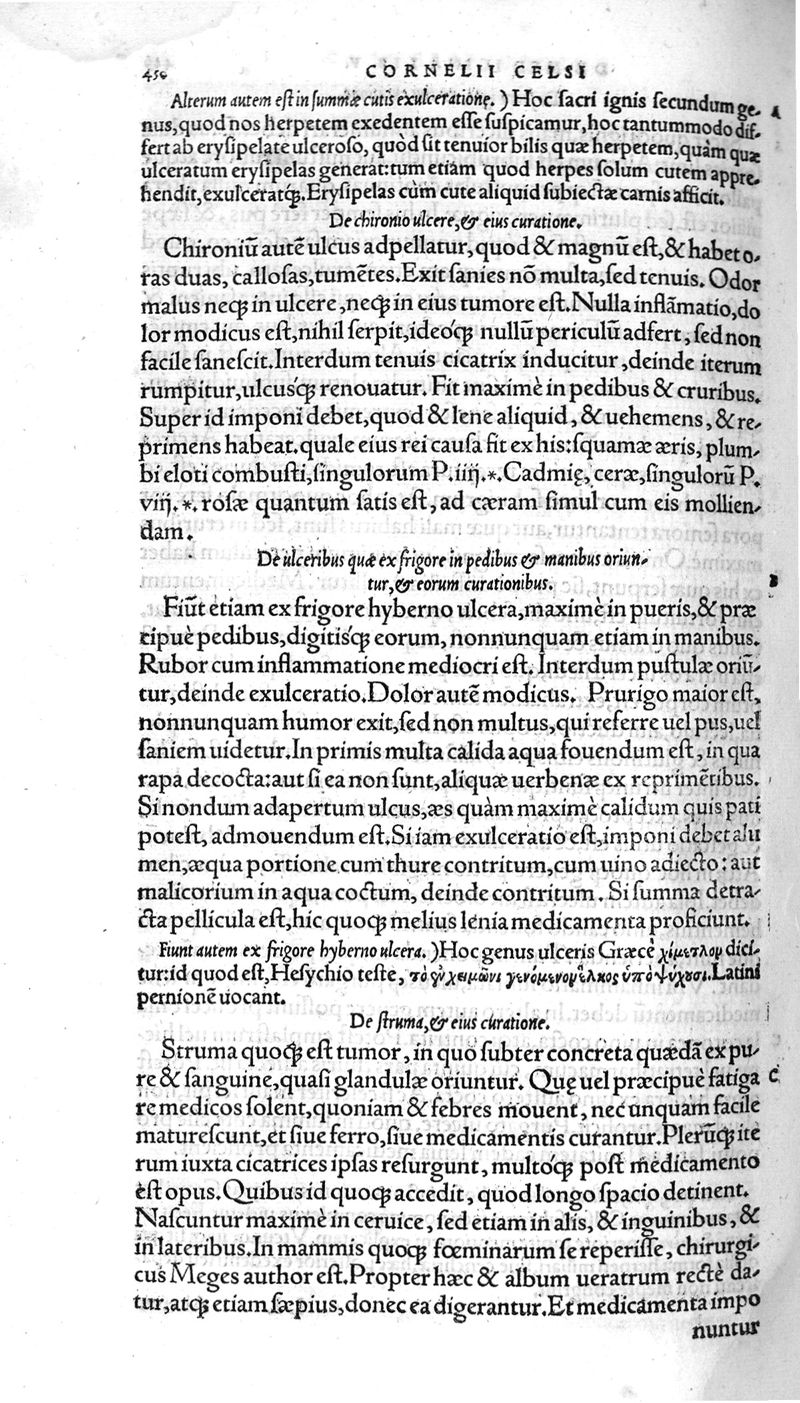 450
CORNELII CELSI
Alterum autem est in summæ cutis exulceratione.) Hoc sacri ignis secundum ge-
A
nus, quod nos herpetem exedentem esse suspicamur, hoc tantummodo dif-
fert ab erysipelate ulceroso, quòd sit tenuior bilis quæ herpetem, quàm quæ
ulceratum erysipelas generat: tum etiam quod herpes solum cutem appre-
hendit, exulceratq́;. Erysipelas cùm cute aliquid subiectæ carnis afficit.
De chironio ulcere, & eius curatione.
Chironiũ autẽ ulcus adpellatur, quod & magnũ est, & habet o-
ras duas, callosas, tumẽtes. Exit sanies nõ multa, sed tenuis. Odor
malus neq; in ulcere, neq; in eius tumore est. Nulla inflãmatio, do
lor modicus est, nihil serpit, ideo'q; nullũ periculũ adfert, sed non
facile sanescit. Interdum tenuis cicatrix inducitur, deinde iterum
rumpitur, ulcus'q; renouatur. Fit maximè in pedibus & cruribus.
Super id imponi debet, quod & lene aliquid, & uehemens, & re-
primens habeat. quale eius rei causa fit ex his: squamæ æris, plum-
bi eloti combusti, singulorum P. iiij. *. Cadmię, ceræ, singulorũ P.
viij. *. rosæ quantum satis est, ad cæram simul cum eis mollien-
dam.
De ulceribus quæ ex frigore in pedibus & manibus oriun-
tur, & eorum curationibus.
B
Fiũt etiam ex frigore hyberno ulcera, maximè in pueris, & præ
cipuè pedibus, digitis'q; eorum, nonnunquam etiam in manibus.
Rubor cum inflammatione mediocri est. Interdum pustulæ oriũ-
tur, deinde exulceratio. Dolor autẽ modicus. Prurigo maior est,
nonnunquam humor exit, sed non multus, qui referre uel pus, uel
saniem uidetur. In primis multa calida aqua fouendum est, in qua
rapa decocta: aut si ea non sunt, aliquæ uerbenæ ex reprimẽtibus.
Si nondum adapertum ulcus, æs quàm maximè calidum quis pati
potest, admouendum est. Si iam exulceratio est, imponi debet alu
men, æqua portione cum thure contritum, cum uino adiecto: aut
malicorium in aqua coctum, deinde contritum. Si summa detra-
cta pellicula est, hic quoq; melius lenia medicamenta proficiunt.
Fiunt autem ex frigore hyberno ulcera.) Hoc genus ulceris Græcè χίμετλον dici-
tur: id quod est, Hesychio teste, τὸ ἐν χειμῶνι γενόμενον ἕλκος ὑπὸ ψύχους. Latini
pernionẽ uocant.
De struma, & eius curatione.
Struma quoq; est tumor, in quo subter concreta quædã ex pu-
re & sanguine, quasi glandulæ oriuntur. Quę uel præcipuè fatiga
C
re medicos solent, quoniam & febres mouent, nec unquam facile
maturescunt, et siue ferro, siue medicamentis curantur. Plerũq; ite
rum iuxta cicatrices ipsas resurgunt, multo'q; post medicamento
est opus. Quibus id quoq; accedit, quod longo spacio detinent.
Nascuntur maximè in ceruice, sed etiam in alis, & inguinibus, &
in lateribus. In mammis quoq; fœminarum se reperisse, chirurgi-
cus Meges author est. Propter hæc & album ueratrum rectè da-
tur, atq; etiam sæpius, donec ea digerantur. Et medicamenta impo
nuntur